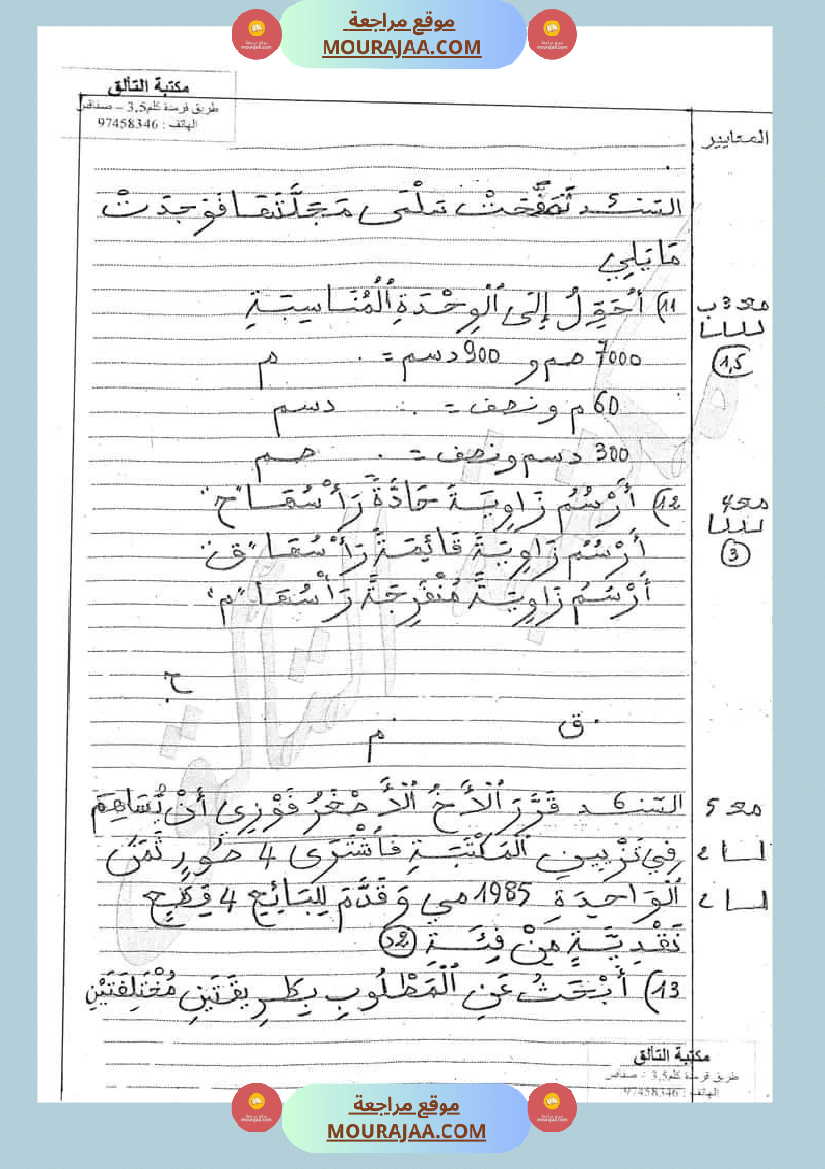 موقع مراجعة
MOURAJAA.COM
مكتبة التألق
طريق قرمدة كلم3,5 – صفاقس
الهاتف : 97458346
المعايير
السّند 5 تَصَفَّحَتْ سَلْمَى مَجَلَّتَهَا فَوَجَدَتْ
مَا يَلِي
مع 3 ب
11) أُحَوِّلُ إِلَى ٱلْوِحْدَةِ ٱلْمُنَاسِبَةِ
1,5
7000 صم و 900 دسم = . م
60 م ونصف = . دسم
300 دسم ونصف = . صم
مع 4
12) أَرْسُمُ زَاوِيَةً حَادَّةً رَأْسُهَا "ح"
3
أَرْسُمُ زَاوِيَةً قَائِمَةً رَأْسُهَا "ق"
أَرْسُمُ زَاوِيَةً مُنْفَرِجَةً رَأْسُهَا "م"
ح
ق
م
مع 5
السّند 6 قَرَّرَ ٱلْأَخُ ٱلْأَصْغَرُ فَوْزِي أَنْ يُسَاهِمَ
فِي تَزْيِينِ ٱلْمَكْتَبَةِ فَٱشْتَرَى 4 صُوَرٍ ثَمَنُ
ٱلْوَاحِدَةِ 1985 مي وَقَدَّمَ لِلْبَائِعِ 4 قِطَعٍ
نَقْدِيَّةٍ مِنْ فِئَةِ
13) أَبْحَثُ عَنِ ٱلْمَطْلُوبِ بِطَرِيقَتَيْنِ مُخْتَلِفَتَيْنِ
مكتبة التألق
طريق قرمدة كلم3,5 – صفاقس
الهاتف : 97458346
موقع مراجعة
MOURAJAA.COM